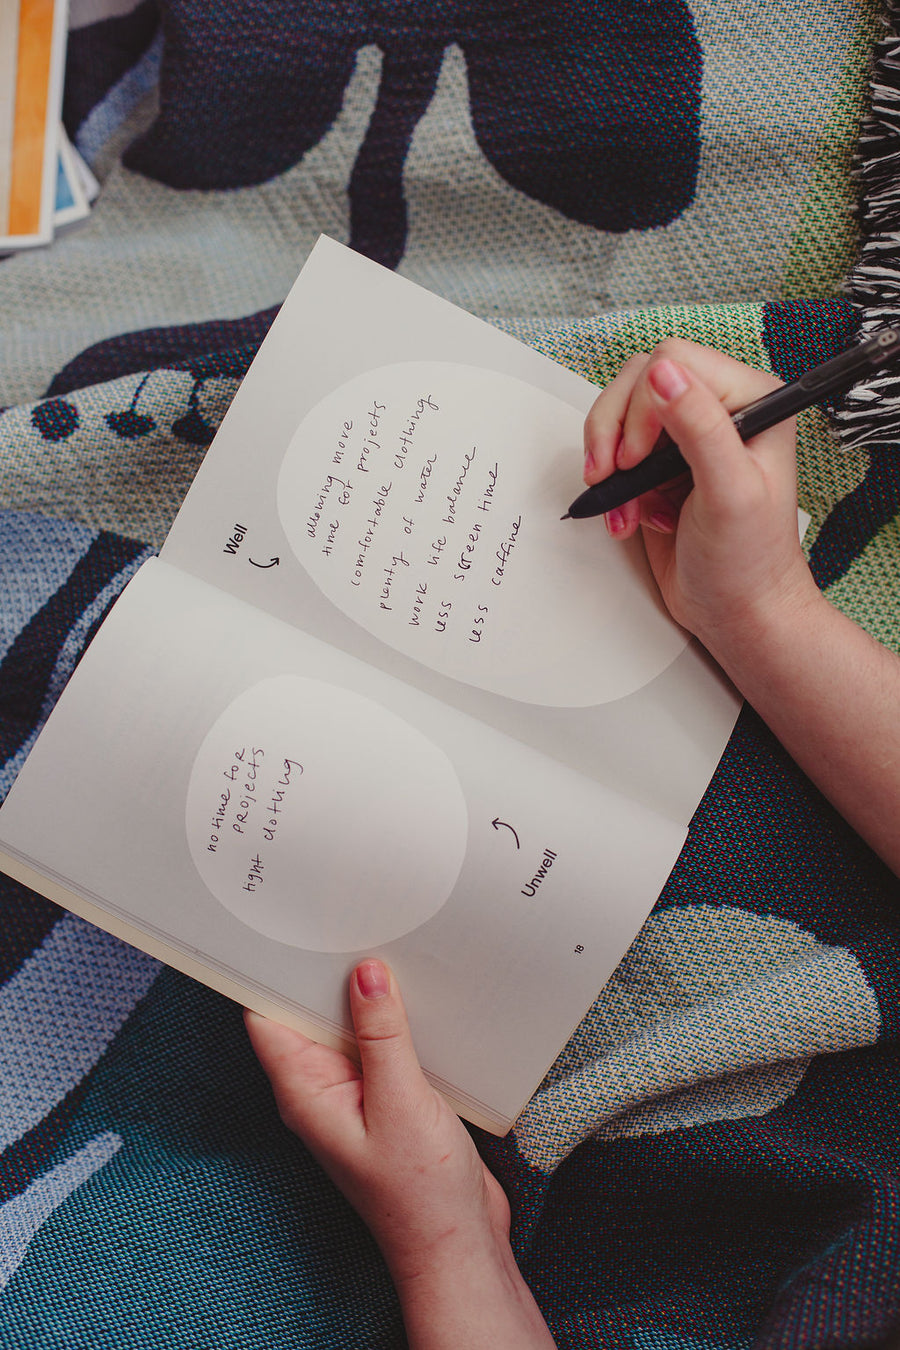 Well
allowing more
time for projects
comfortable clothing
plenty of water
work life balance
less screen time
less caffine
no time for
PROJECTS
tight clothing
Unwell
18